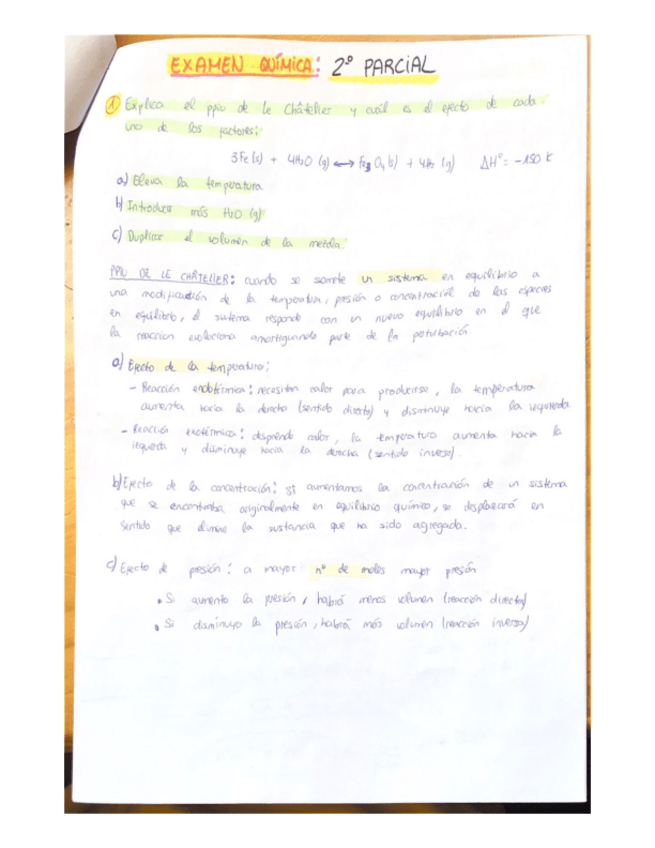 EXAMEN QUÍMICA: 2º PARCIAL
① Explica el ppio de Le Châtelier y cuál es el efecto de cada
uno de los factores:
3Fe (s) + 4H2O (g) ⟷ Fe3O4 (s) + 4H2 (g) ΔHº = -150 k
a) Eleva la temperatura
b) Introducir más H2O (g)
c) Duplicar el volumen de la mezcla.
PPIO DE LE CHÂTELIER: cuando se somete un sistema en equilibrio a
una modificación de la temperatura, presión o concentración de las especies
en equilibrio, el sistema responde con un nuevo equilibrio en el que
la reacción evoluciona amortiguando parte de la perturbación
a) Efecto de la temperatura:
- Reacción endotérmica: necesitan calor para producirse, la temperatura
aumenta hacia la derecha (sentido directo) y disminuye hacia la izquierda
- Reacción exotérmica: desprende calor, la temperatura aumenta hacia la
izquierda y disminuye hacia la derecha (sentido inverso).
b) Efecto de la concentración: si aumentamos la concentración de un sistema
que se encontraba originalmente en equilibrio químico, se desplazará en
sentido que elimine la sustancia que ha sido agregada.
c) Efecto de presión: a mayor nº de moles mayor presión
• Si aumento la presión, habrá menos volumen (reacción directa)
• Si disminuyo la presión, habrá más volumen (reacción inversa)